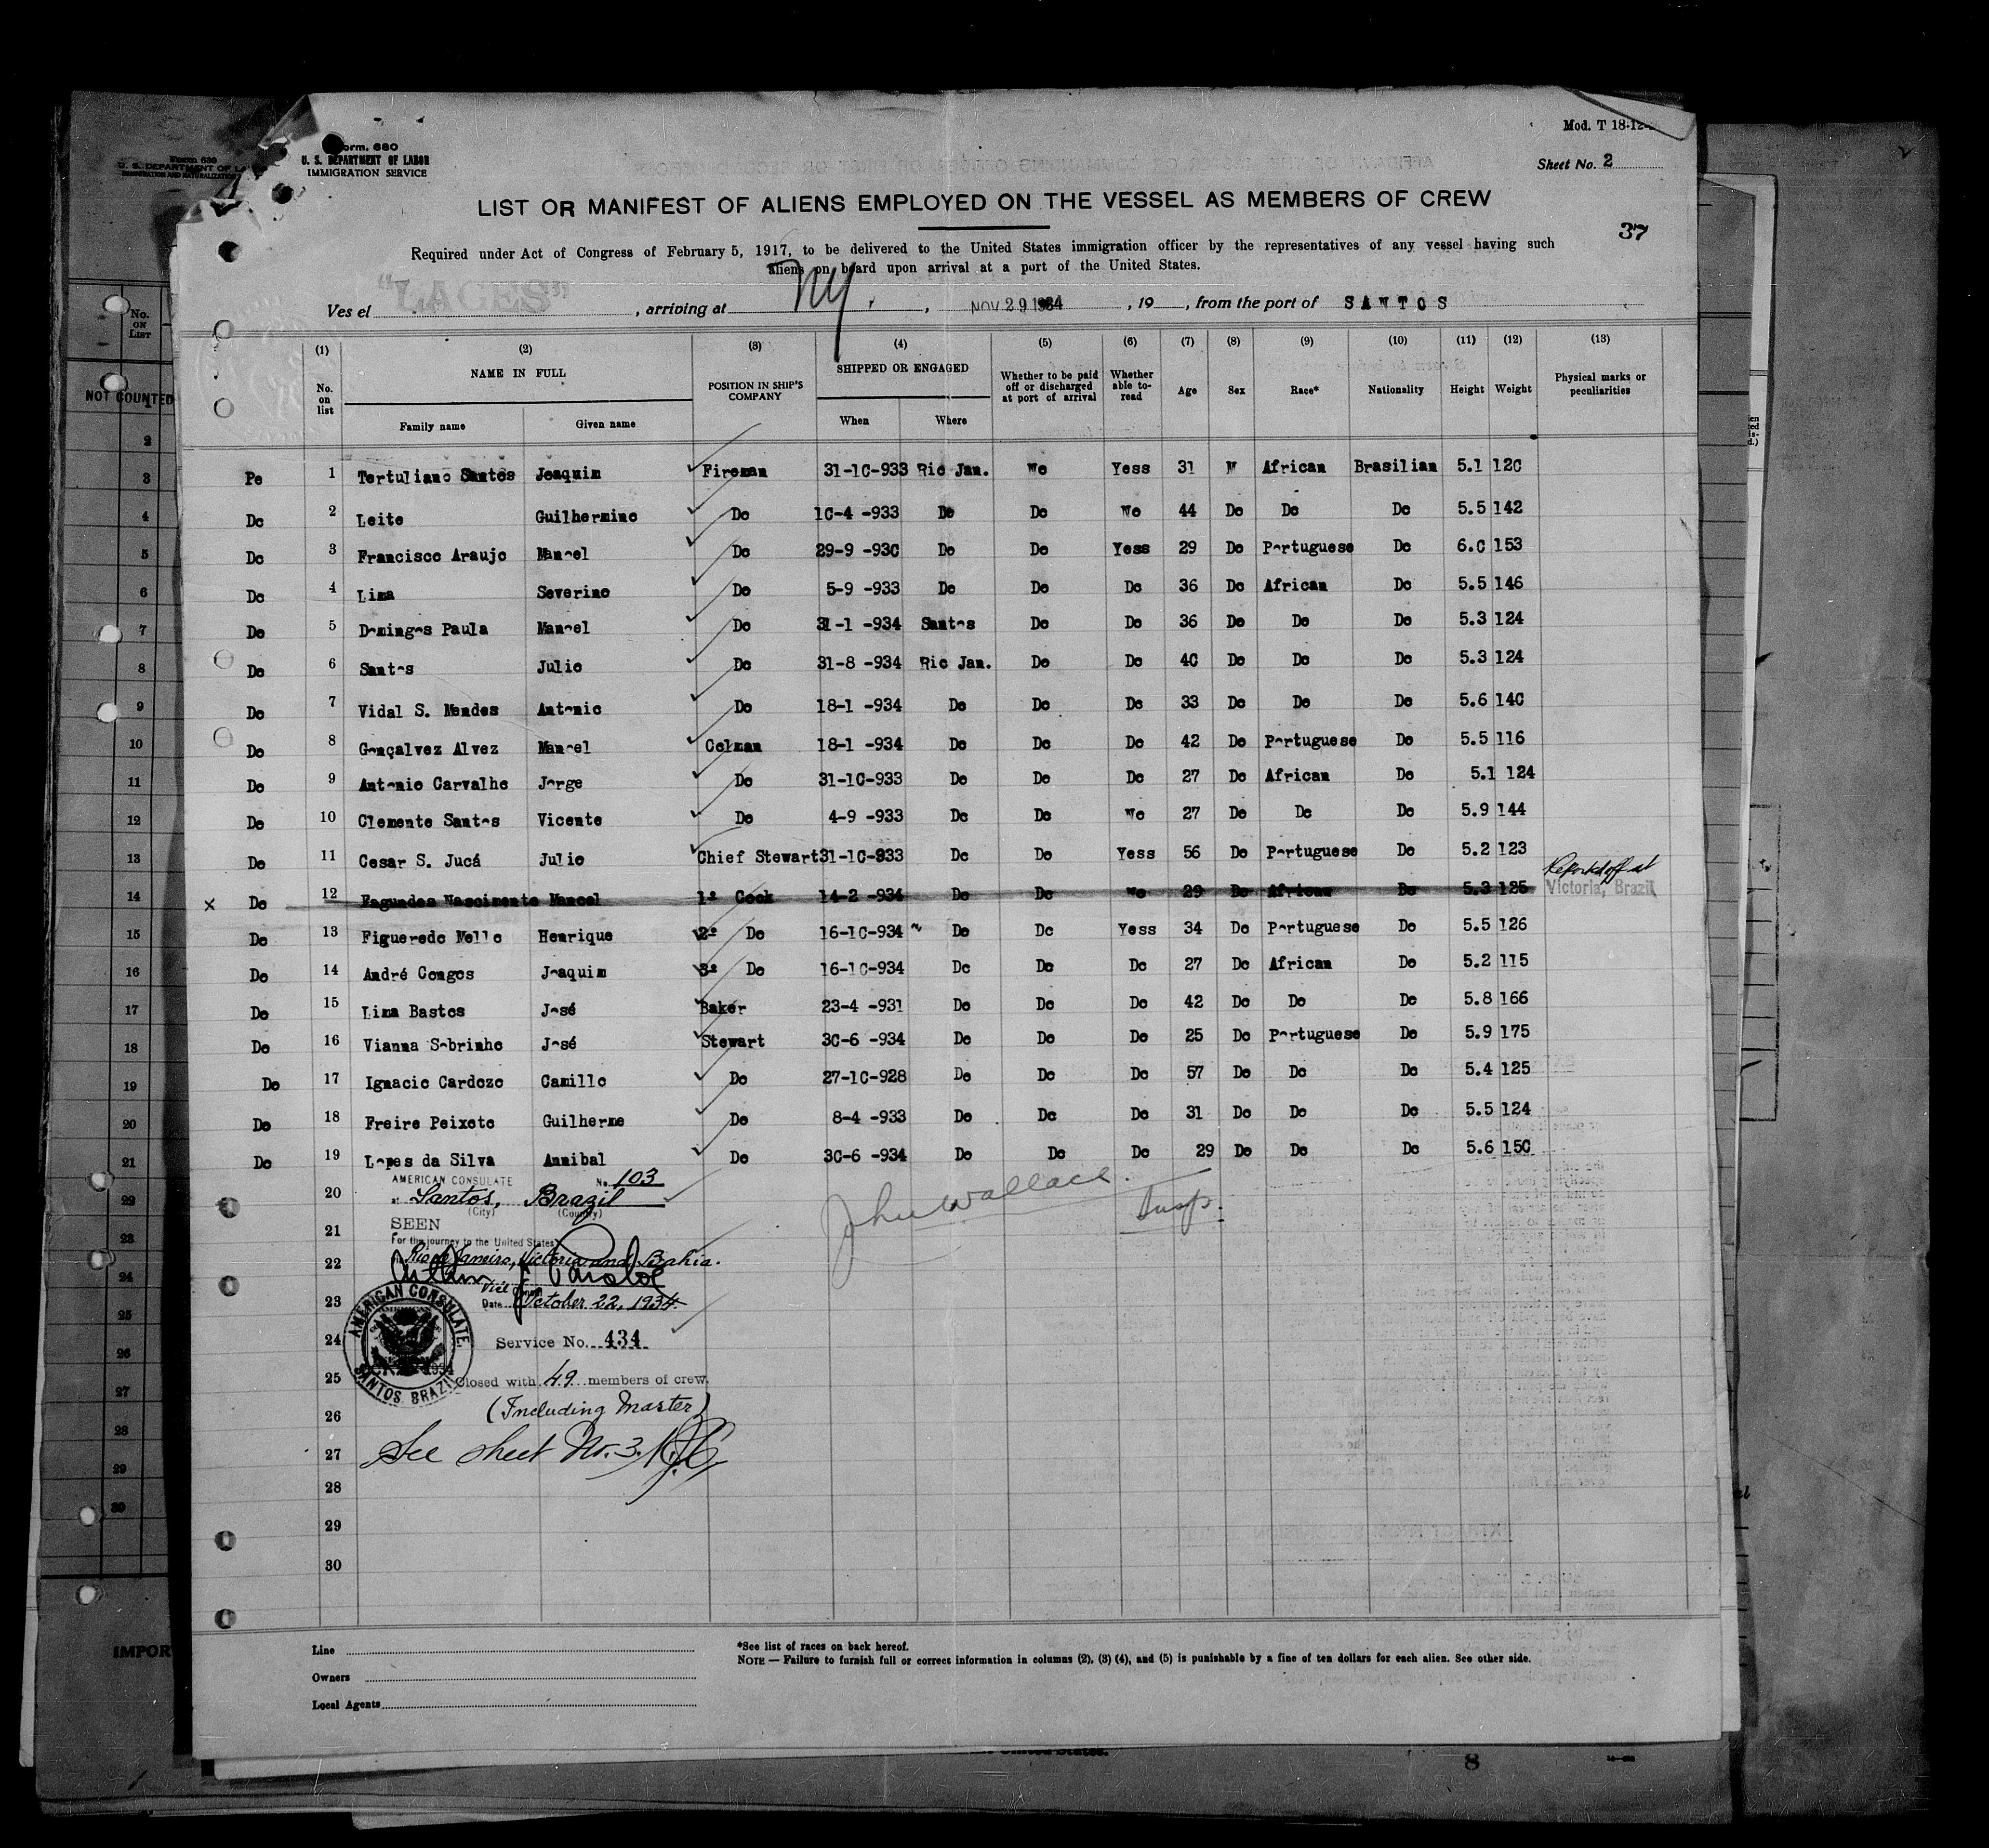 Mod. T 18-12-
Form 630
U. S. DEPARTMENT OF LA
IMMIGRATION AND NATURALIZATION
Form. 680
U. S. DEPARTMENT OF LABOR
IMMIGRATION SERVICE
Sheet No. 2
LIST OR MANIFEST OF ALIENS EMPLOYED ON THE VESSEL AS MEMBERS OF CREW
37
Required under Act of Congress of February 5, 1917, to be delivered to the United States immigration officer by the representatives of any vessel having such
aliens on board upon arrival at a port of the United States.
Ves el "LAGES" , arriving at NY , NOV 29 1934 , 19 , from the port of SANTOS
(1) (2) (3) (4) (5) (6) (7) (8) (9) (10) (11) (12) (13)
No. on list NAME IN FULL POSITION IN SHIP'S COMPANY SHIPPED OR ENGAGED Whether to be paid off or discharged at port of arrival Whether able to- read Age Sex Race* Nationality Height Weight Physical marks or peculiarities
Family name Given name When Where
No. ON LIST
NOT COUNTED
Pe 1 Tertuliano Santos Joaquim Fireman 31-10-933 Rio Jan. No Yess 31 M African Brasilian 5.1 120
Do 2 Leite Guilhermino Do 10-4 -933 Do Do No 44 Do Do Do 5.5 142
Do 3 Francisco Araujo Manoel Do 29-9 -930 Do Do Yess 29 Do Portuguese Do 6.0 153
Do 4 Lima Severino Do 5-9 -933 Do Do Do 36 Do African Do 5.5 146
Do 5 Domingos Paula Manoel Do 31-1 -934 Santos Do Do 36 Do Do Do 5.3 124
Do 6 Santos Julio Do 31-8 -934 Rio Jan. Do Do 40 Do Do Do 5.3 124
Do 7 Vidal S. Mendes Antonio Do 18-1 -934 Do Do Do 33 Do Do Do 5.6 140
Do 8 Gonçalvez Alvez Manoel Colman 18-1 -934 Do Do Do 42 Do Portuguese Do 5.5 116
Do 9 Antonio Carvalho Jorge Do 31-10-933 Do Do Do 27 Do African Do 5.1 124
Do 10 Clemente Santos Vicente Do 4-9 -933 Do Do No 27 Do Do Do 5.9 144
Do 11 Cesar S. Jucá Julio Chief Stewart 31-10-933 Do Do Yess 56 Do Portuguese Do 5.2 123
x Do 12 Fagundes Nascimento Manoel 1º Cook 14-2 -934 Do Do No 29 Do African Do 5.3 125 Victoria, Brazil
Do 13 Figueredo Mello Henrique 2º Do 16-10-934 Do Do Yess 34 Do Portuguese Do 5.5 126
Do 14 André Congos Joaquim 3º Do 16-10-934 Do Do Do 27 Do African Do 5.2 115
Do 15 Lima Bastos José Baker 23-4 -931 Do Do Do 42 Do Do Do 5.8 166
Do 16 Vianna Sobrinho José Stewart 30-6 -934 Do Do Do 25 Do Portuguese Do 5.9 175
Do 17 Ignacio Cardozo Camillo Do 27-10-928 Do Do Do 57 Do Do Do 5.4 125
Do 18 Freire Peixoto Guilherme Do 8-4 -933 Do Do Do 31 Do Do Do 5.5 124
Do 19 Lopes da Silva Annibal Do 30-6 -934 Do Do Do 29 Do Do Do 5.6 150
AMERICAN CONSULATE No. 103
20 at Santos, Brazil
(City) (Country)
John Wallace. Insp.
21 SEEN
For the journey to the United States
22 Rio de Janeiro, Victoria and Bahia.
Vice Consul
23 Date October 22, 1934.
AMERICAN CONSULATE SANTOS BRAZIL
24 Service No. 434
25 Closed with 49 members of crew.
26 (Including Master)
27 See sheet No. 3.
28
29
30
Line
Owners
Local Agents
*See list of races on back hereof.
NOTE — Failure to furnish full or correct information in columns (2), (3) (4), and (5) is punishable by a fine of ten dollars for each alien. See other side.
IMPOR
8